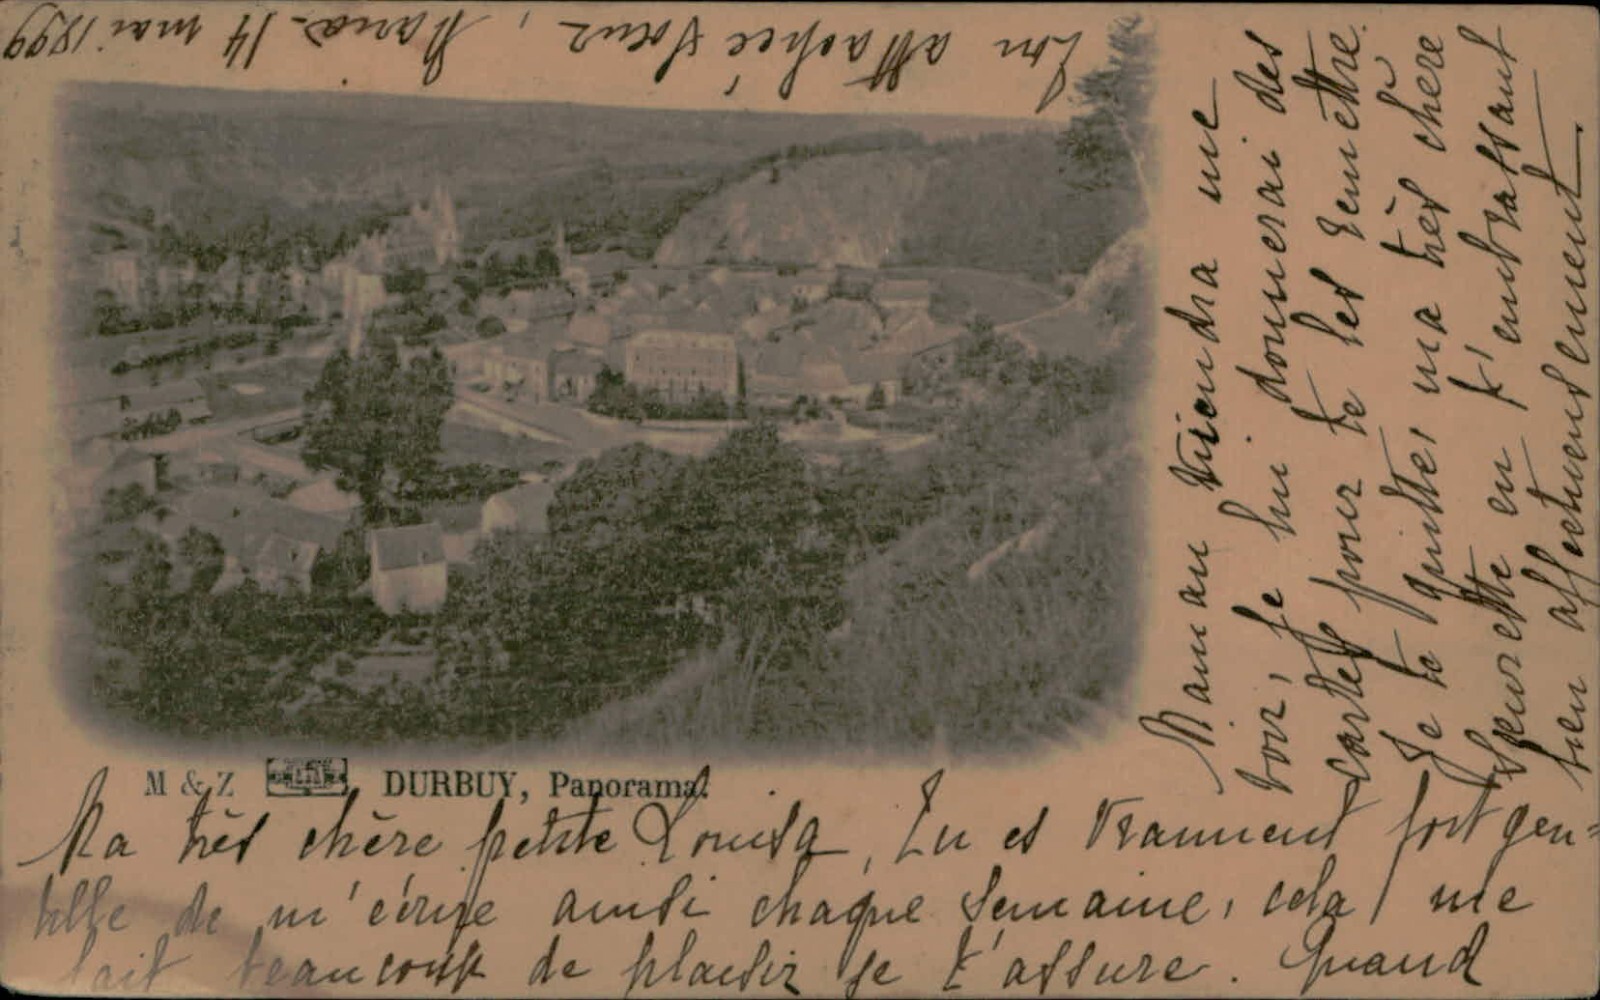 M & Z DURBUY, Panorama.
Ma très chère petite Louisa, Tu es vraiment fort gen=
tille de m'écrire ainsi chaque semaine, cela me
fait beaucoup de plaisir je t'assure. Quand
Maman viendra me
voir, je lui donnerai des
cartes pour te les remettre.
Je te quitte, ma très chère
Sœurette en t'embrassant
bien affectueusement.
Ton attachée sœur, Maria. 14 mai 1899